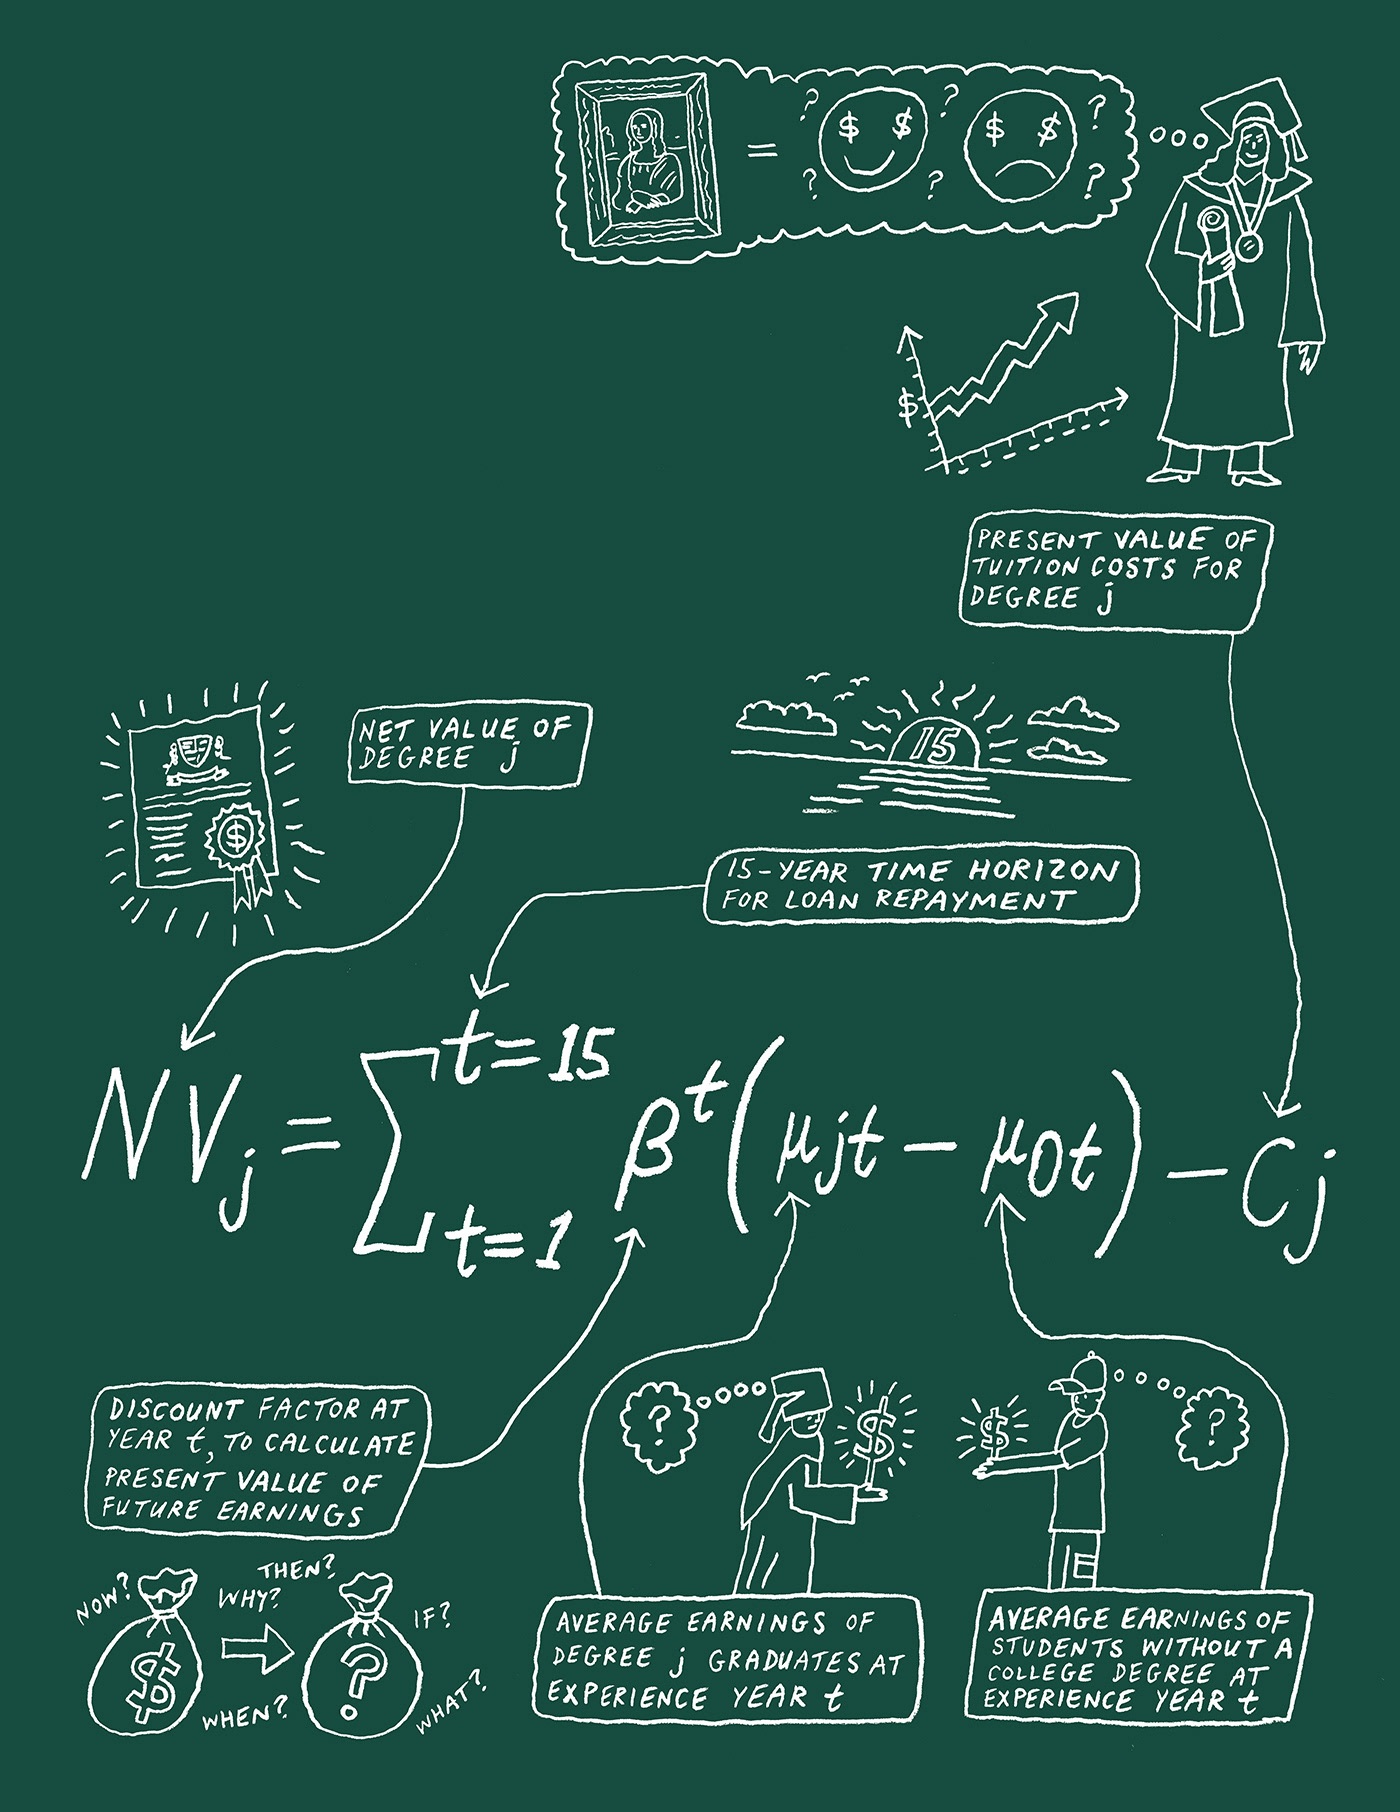 ? ? ? ? ? ?
= $ $ $ $
$
PRESENT VALUE OF
TUITION COSTS FOR
DEGREE j
NET VALUE OF
DEGREE j
$
15
15-YEAR TIME HORIZON
FOR LOAN REPAYMENT
t=15
NVj = ∑ β^t (μjt − μ0t) − Cj
t=1
DISCOUNT FACTOR AT
YEAR t, TO CALCULATE
PRESENT VALUE OF
FUTURE EARNINGS
? $ $ ?
NOW?
WHY?
THEN?
IF?
$ ?
WHEN?
WHAT?
AVERAGE EARNINGS OF
DEGREE j GRADUATES AT
EXPERIENCE YEAR t
AVERAGE EARNINGS OF
STUDENTS WITHOUT A
COLLEGE DEGREE AT
EXPERIENCE YEAR t